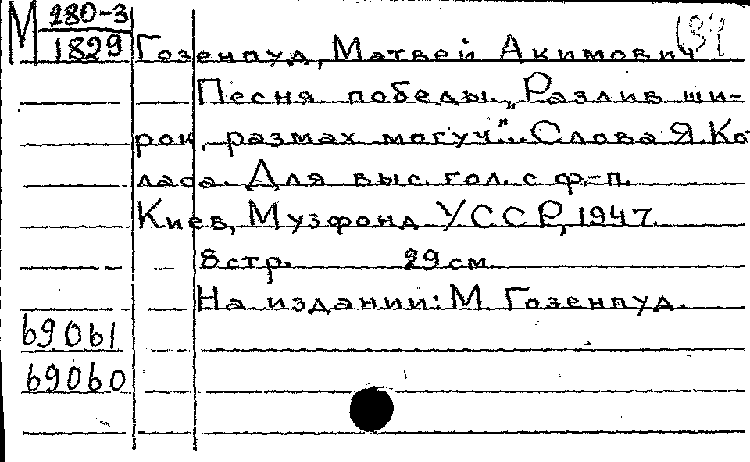 М 280-3
1829
Гозенпуд, Матвей Акимович
Песня победы. „Разлив ши-
рок, размах могуч"... Слова Я. Ко
ласа. Для выс. гол. с ф.-п.
Киев, Музфонд УССР, 1947.
8 стр. 29 см
На издании: М. Гозенпуд.
69061
69060